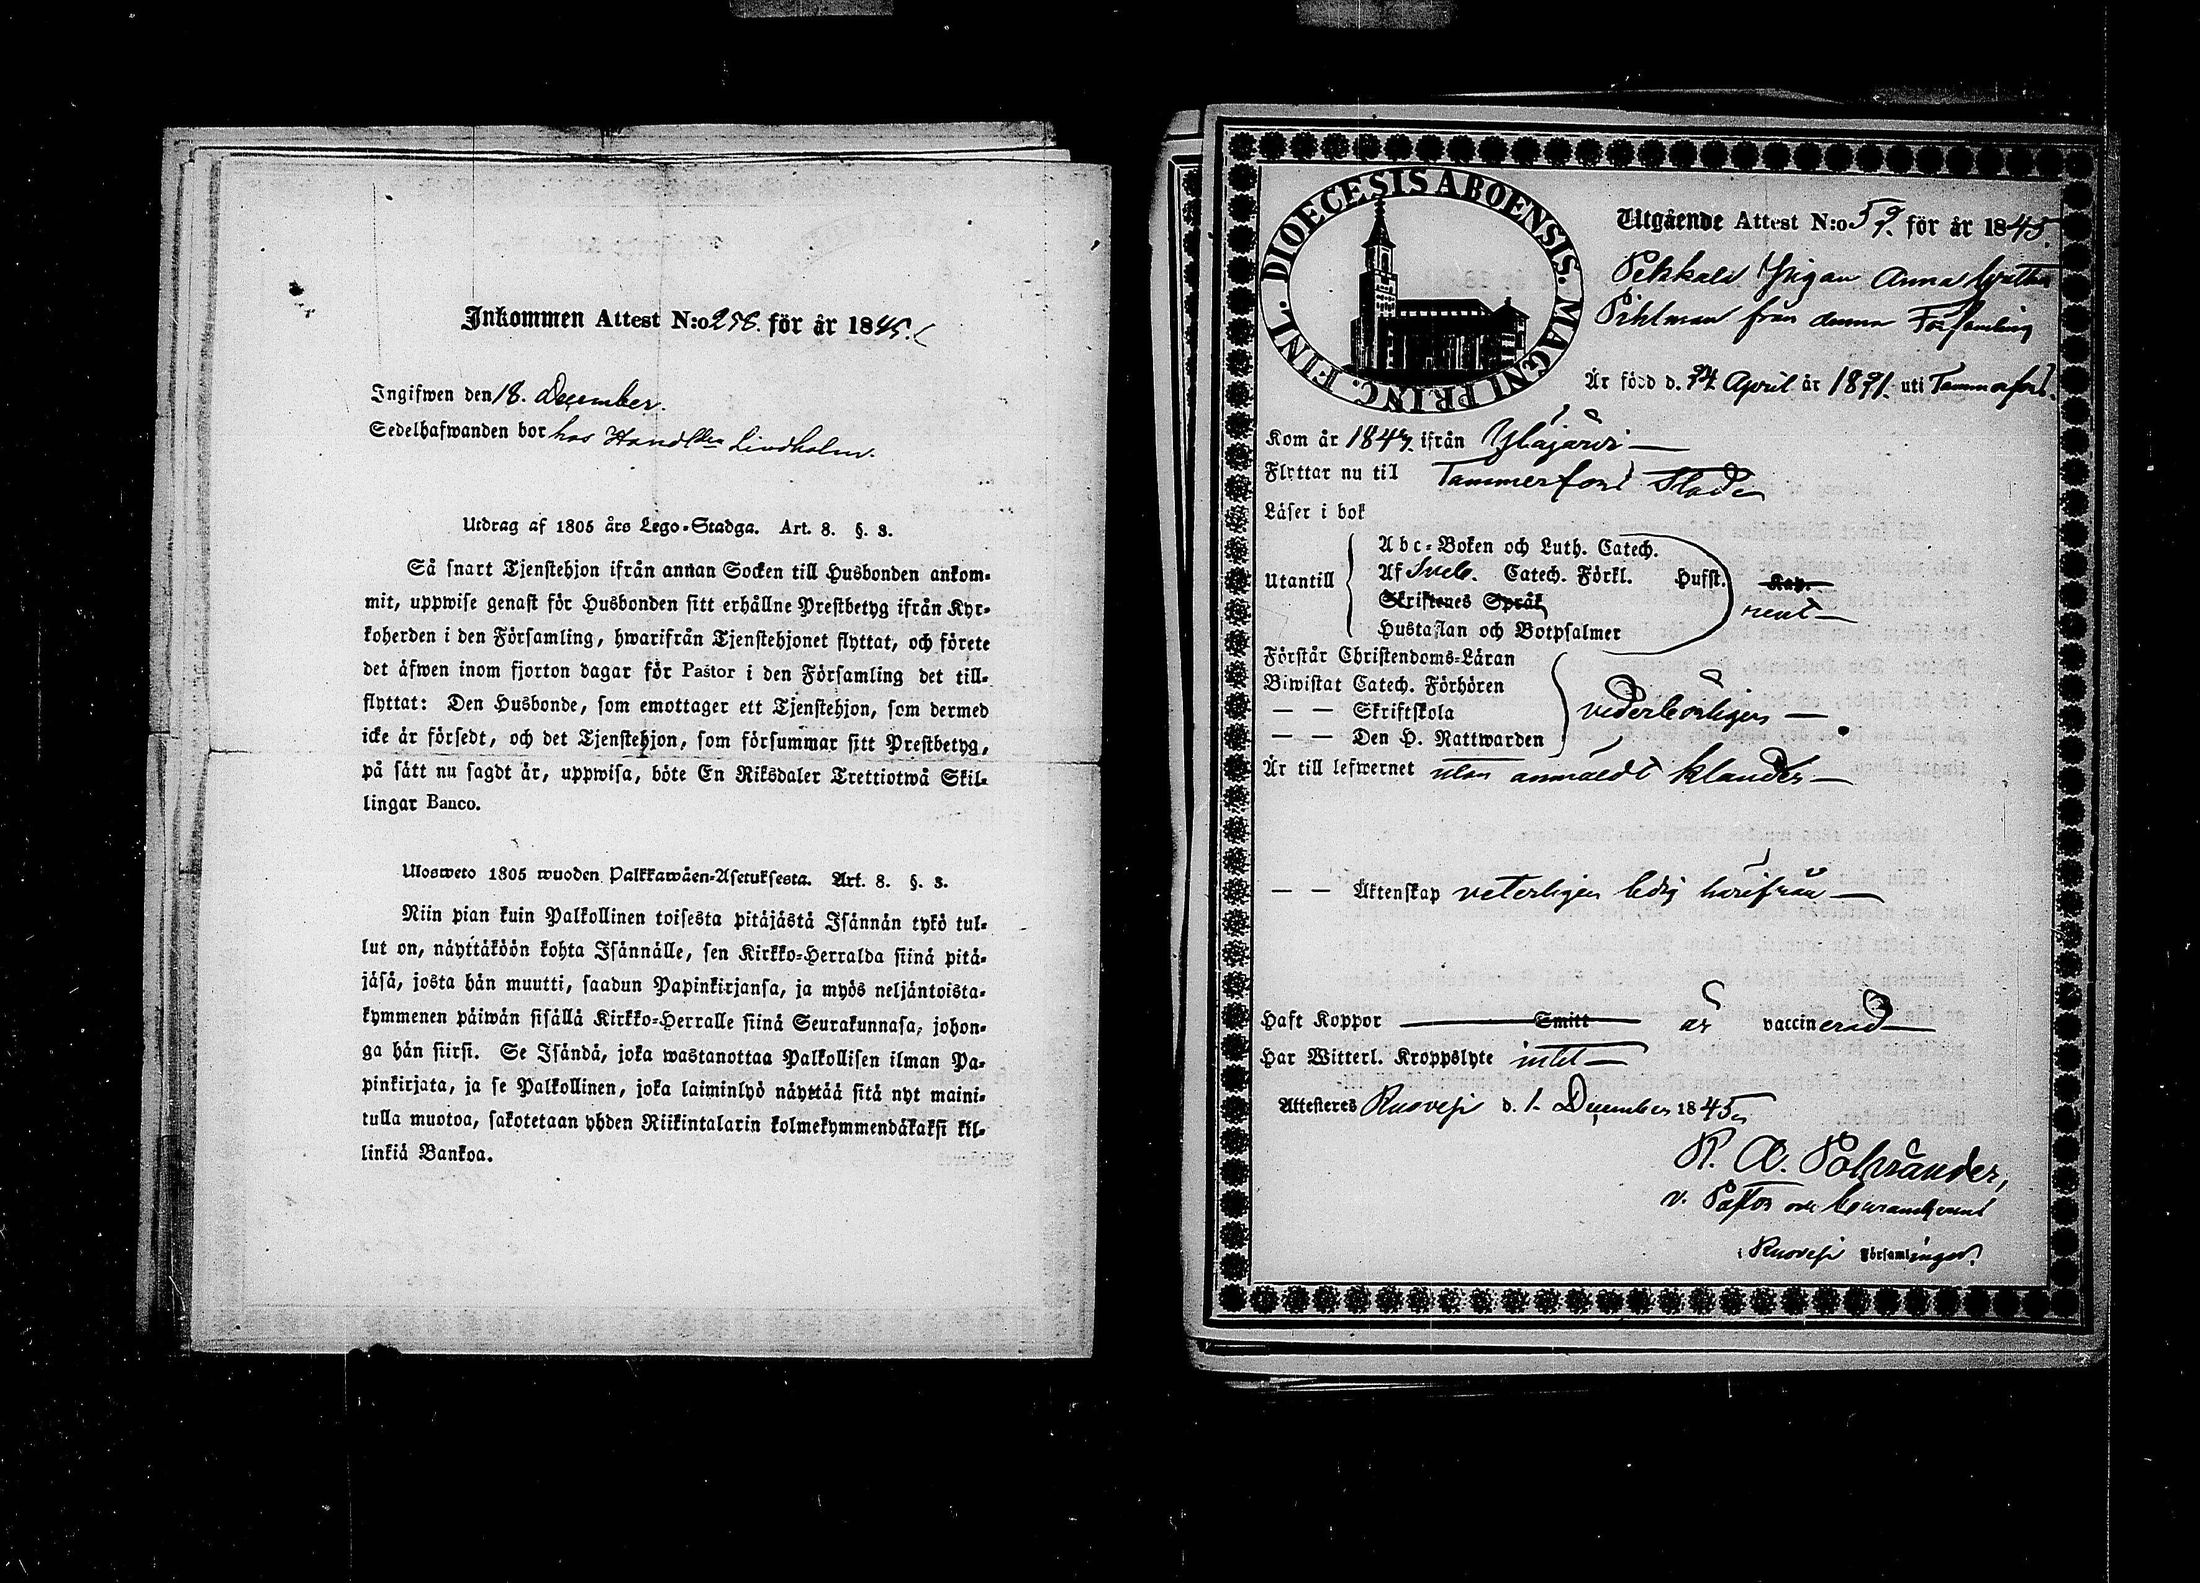 Inkommen Attest N:o 258. för år 1845.
Ingifwen den 18. December.
Sedelhafwanden bor hos Handl Lindholm.
Utdrag af 1805 års Lego-Stadga. Art. 8. §. 3.
Så snart Tjenstehjon ifrån annan Socken till Husbonden ankom-
mit, uppwise genast för Husbonden sitt erhållne Prestbetyg ifrån Kyr-
koherden i den Församling, hwarifrån Tjenstehjonet flyttat, och förete
det äfwen inom fjorton dagar för Pastor i den Församling det till-
flyttat: Den Husbonde, som emottager ett Tjenstehjon, som dermed
icke är försedt, och det Tjenstehjon, som försummar sitt Prestbetyg,
på sätt nu sagdt är, uppwisa, böte En Riksdaler Trettiotwå Skil-
lingar Banco.
Ulosweto 1805 wuoden Palkkawäen-Asetuksesta. Art. 8. §. 3.
Niin pian kuin Palkollinen toisesta pitäjästä Isännän tykö tul-
lut on, näyttäköön kohta Isännälle, sen Kirkko-Herralda siinä pitä-
jäsä, josta hän muutti, saadun Papinkirjansa, ja myös neljäntoista-
kymmenen päiwän sisällä Kirkko-Herralle siinä Seurakunnasa, johon-
ga hän siirsi. Se Isändä, joka wastanottaa Palkollisen ilman Pa-
pinkirjata, ja se Palkollinen, joka laiminlyö näyttää sitä nyt maini-
tulla muotoa, sakotetaan yhden Riikintalarin kolmekymmendäkaksi kil-
linkiä Bankoa.
FINL. DIOECESIS ABOENSIS. MAGNI PRINC.
Utgående Attest N:o 59. för år 1845.
Pekkala Pigan Anna
Pihlman från denna Församling
Är född d. 24 April år 1821. uti Tammerfors.
Kom år 1844. ifrån Ylöjärwi
Flyttar nu til Tammerfors Stad
Läser i bok
Abc-Boken och Luth. Catech.
Utantill Af Sveb. Catech. Förkl. Hufst. Kap.
Skriftenes Språk rent
Hustaflan och Botpsalmer
Förstår Christendoms-Läran
Biwistat Catech. Förhören
— — Skriftskola vederbörligen
— — Den H. Nattwarden
Är till lefwernet utan anmäldt klander
— — Äktenskap veterligen ledig härifrån
Haft Koppor Smitt är vaccinerad
Har Witterl. Kroppslyte intet
Attesteres Ruovesi d. 1. December 1845
R. A. Polviander,
v. Pastor
i Ruovesi Församlingar.